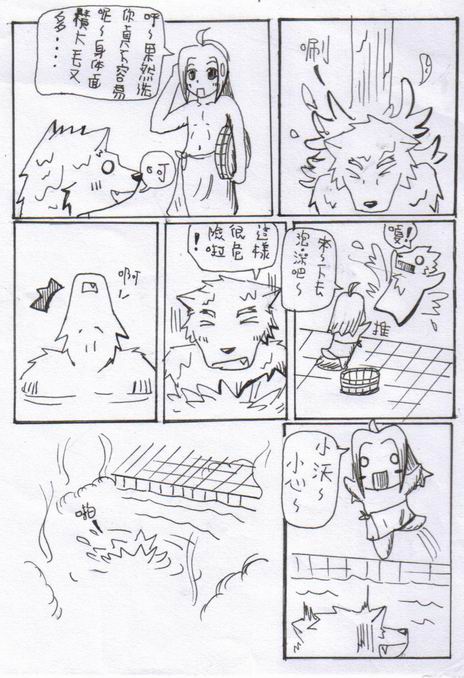 唰
呼～果然洗
你真不容易
呢～身體面
積大毛又
多‥‥
呵
嗄!
來～下去
泡澡吧～
推
這樣
很危
險啦
!
啊
小沃～
小心～
啪